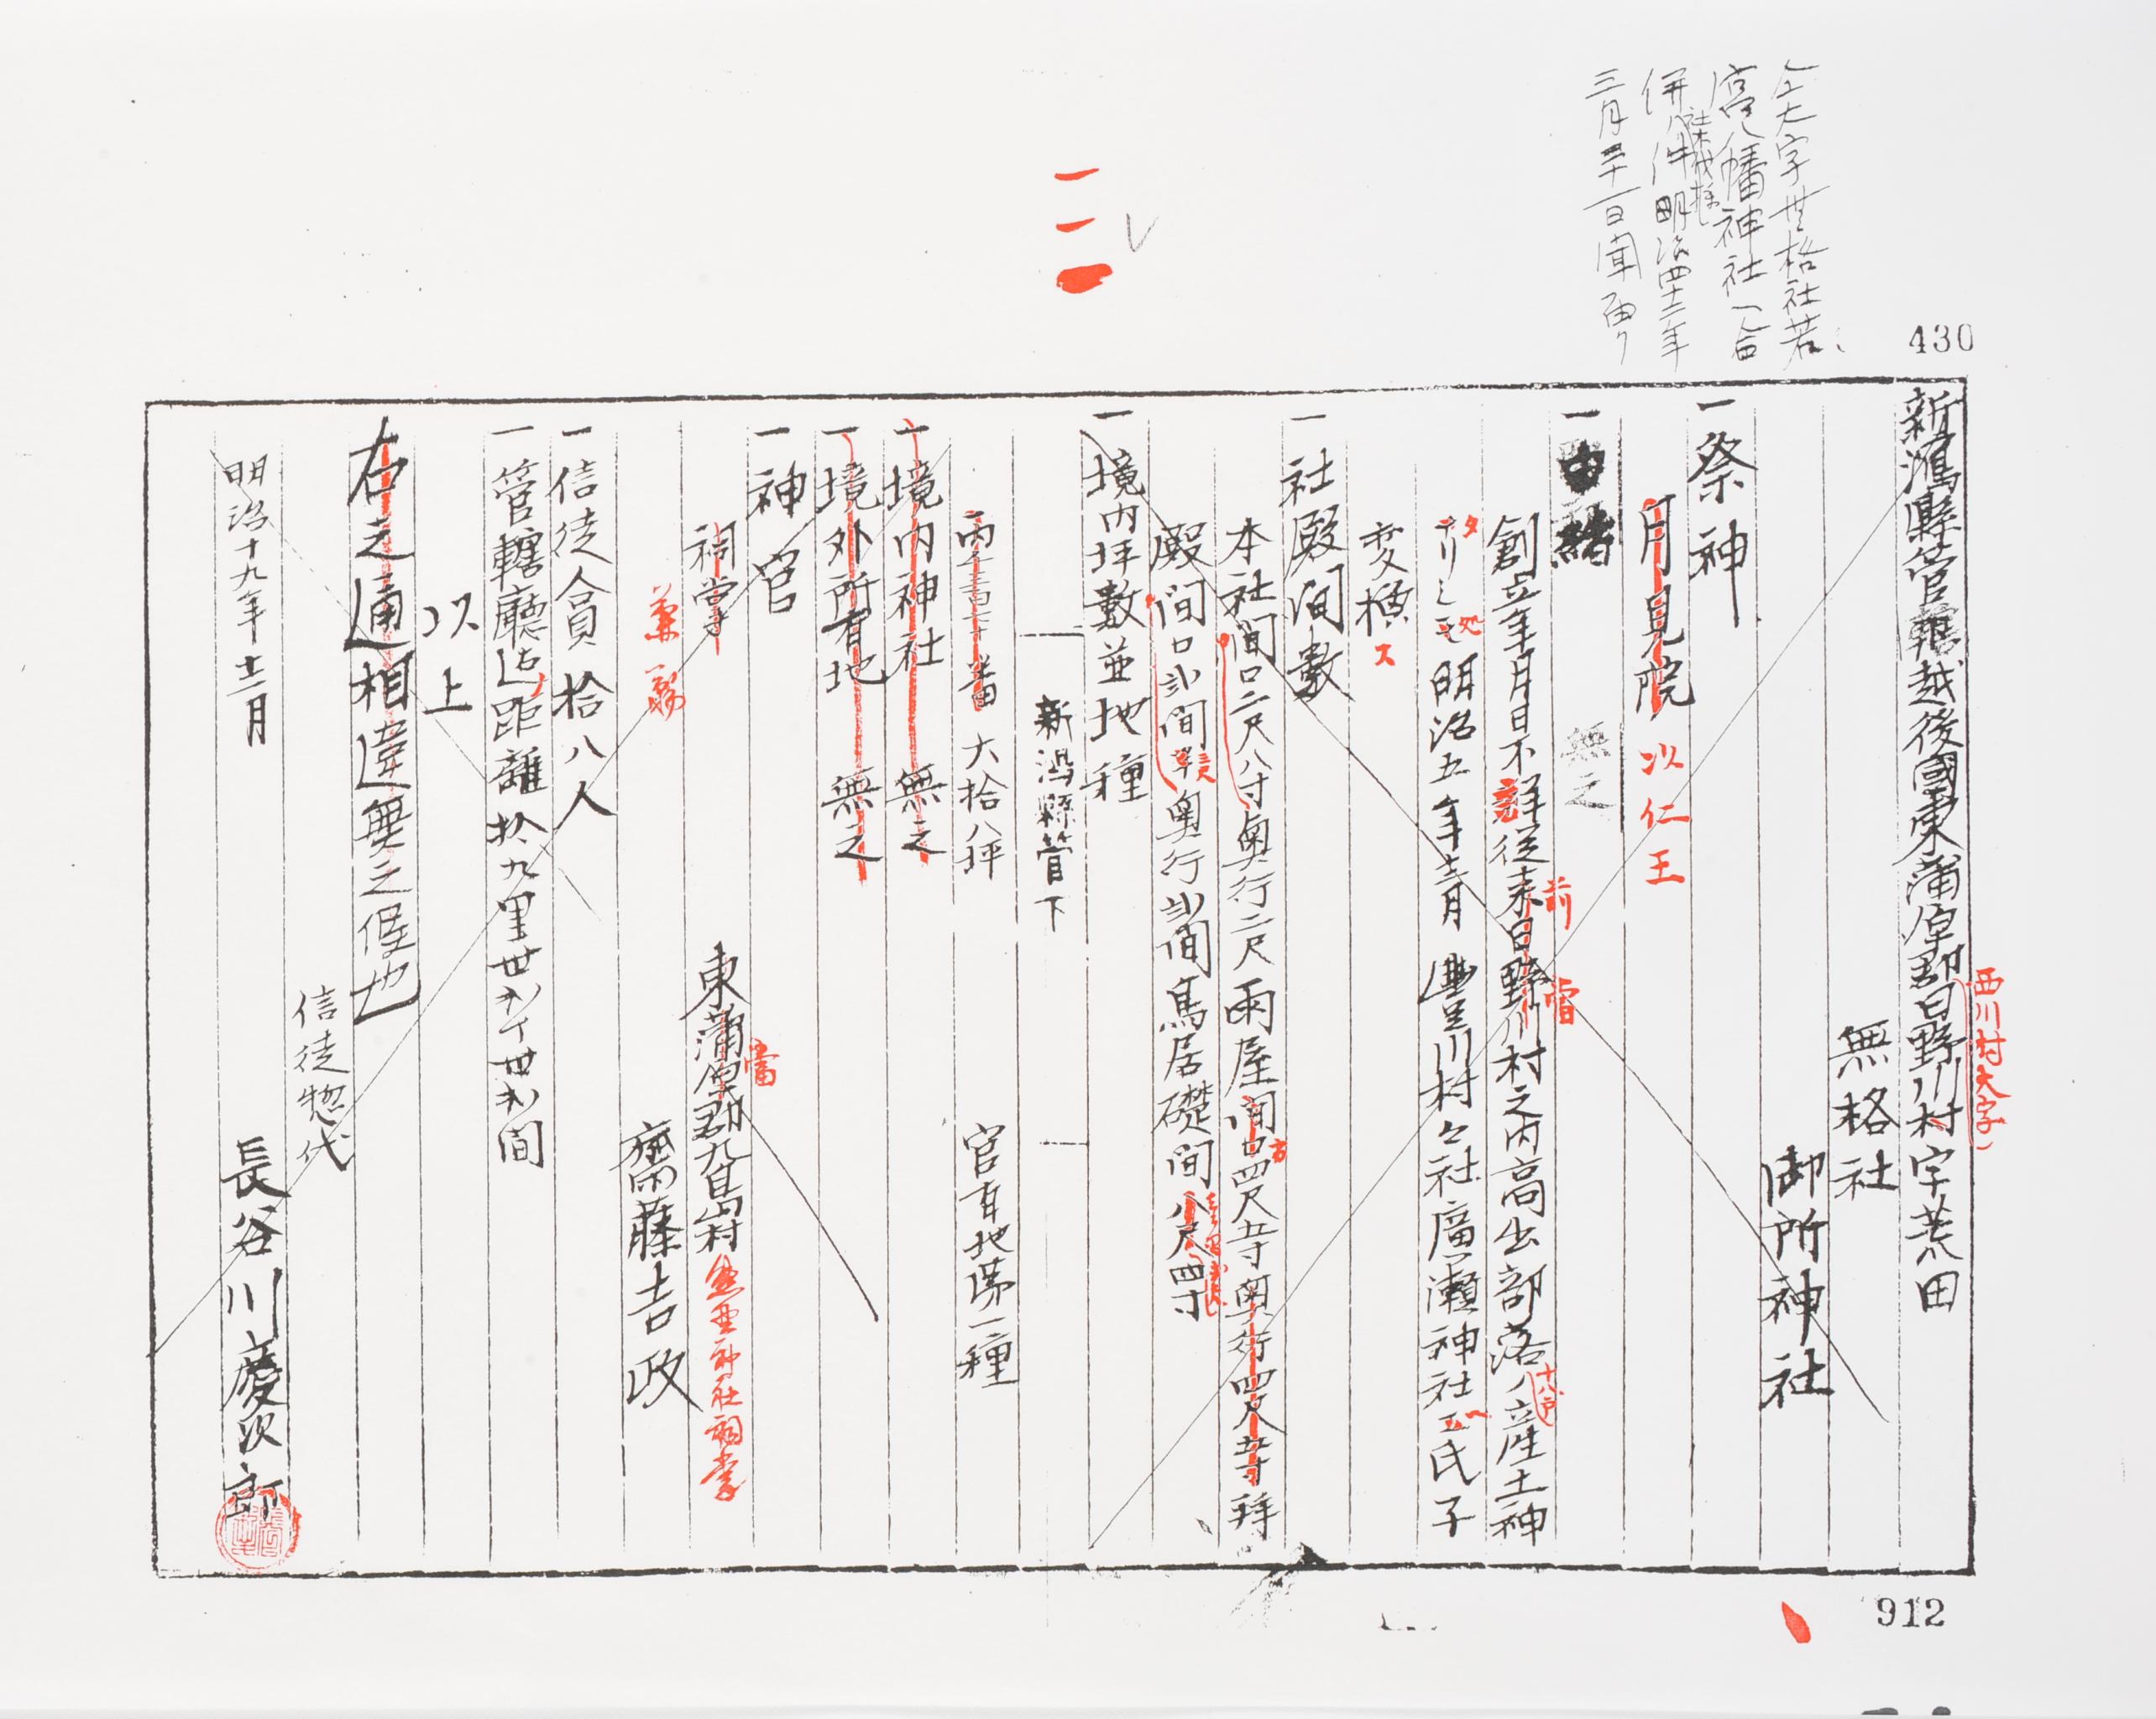 430
仝大字無格社若
宮八幡神社ヘ合
併ノ件明治四十二年
三月三十一日聞届ク
新潟縣管轄越後國東蒲原郡日野川村字荒田
西川村大字
無格社
御所神社
一祭神
月見院
以仁王
一由緒
無之
創立年月日不詳從来日野川村之内高出部落ノ産土神
前
當
十八戸
明治五年十二月豊川村々社廣瀬神社氏子
変換ス
一社殿間數
本社間口二尺八寸奥行二尺雨屋間口四尺五寸奥行四尺五寸拝
殿間口弐間奥行弐間鳥居礎間八尺四寸
一境内坪數並地種
新潟縣管下
六拾八坪
官有地第一種
一境内神社 無之
一境外所有地 無之
一神官
祠掌
兼務
東蒲原郡九島村
神社祠掌
齋藤吉政
一信徒人員拾八人
一管轄廳迄距離拾九里廿九丁
以上
右之通相違無之候也
信徒惣代
明治十九年十二月
長谷川慶次郎
912